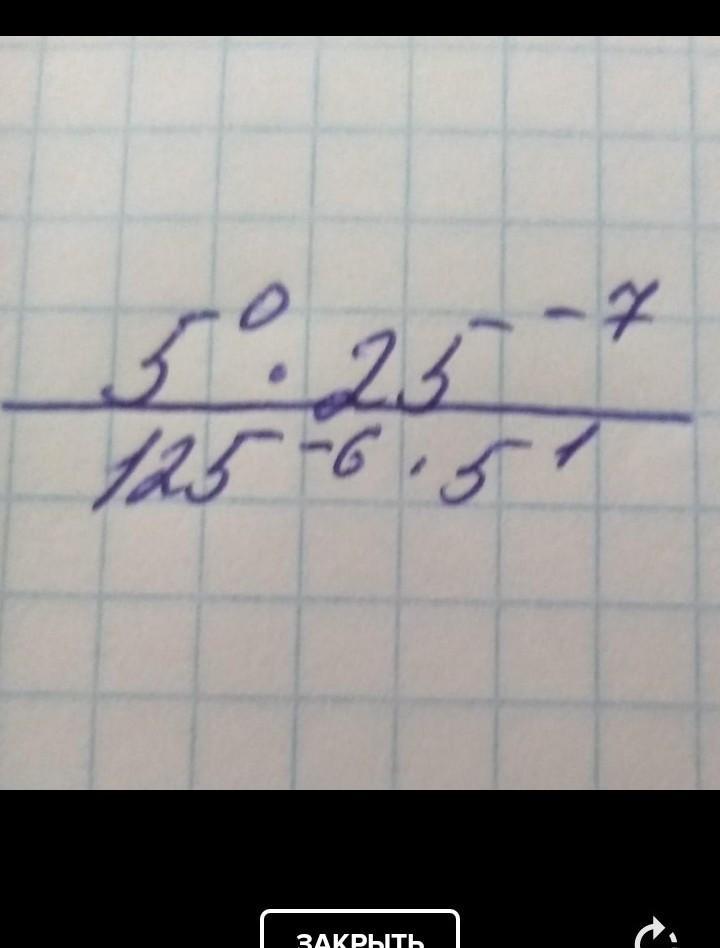 5⁰ · 25⁻⁷
125⁻⁶ · 5¹
ЗАКРЫТЬ